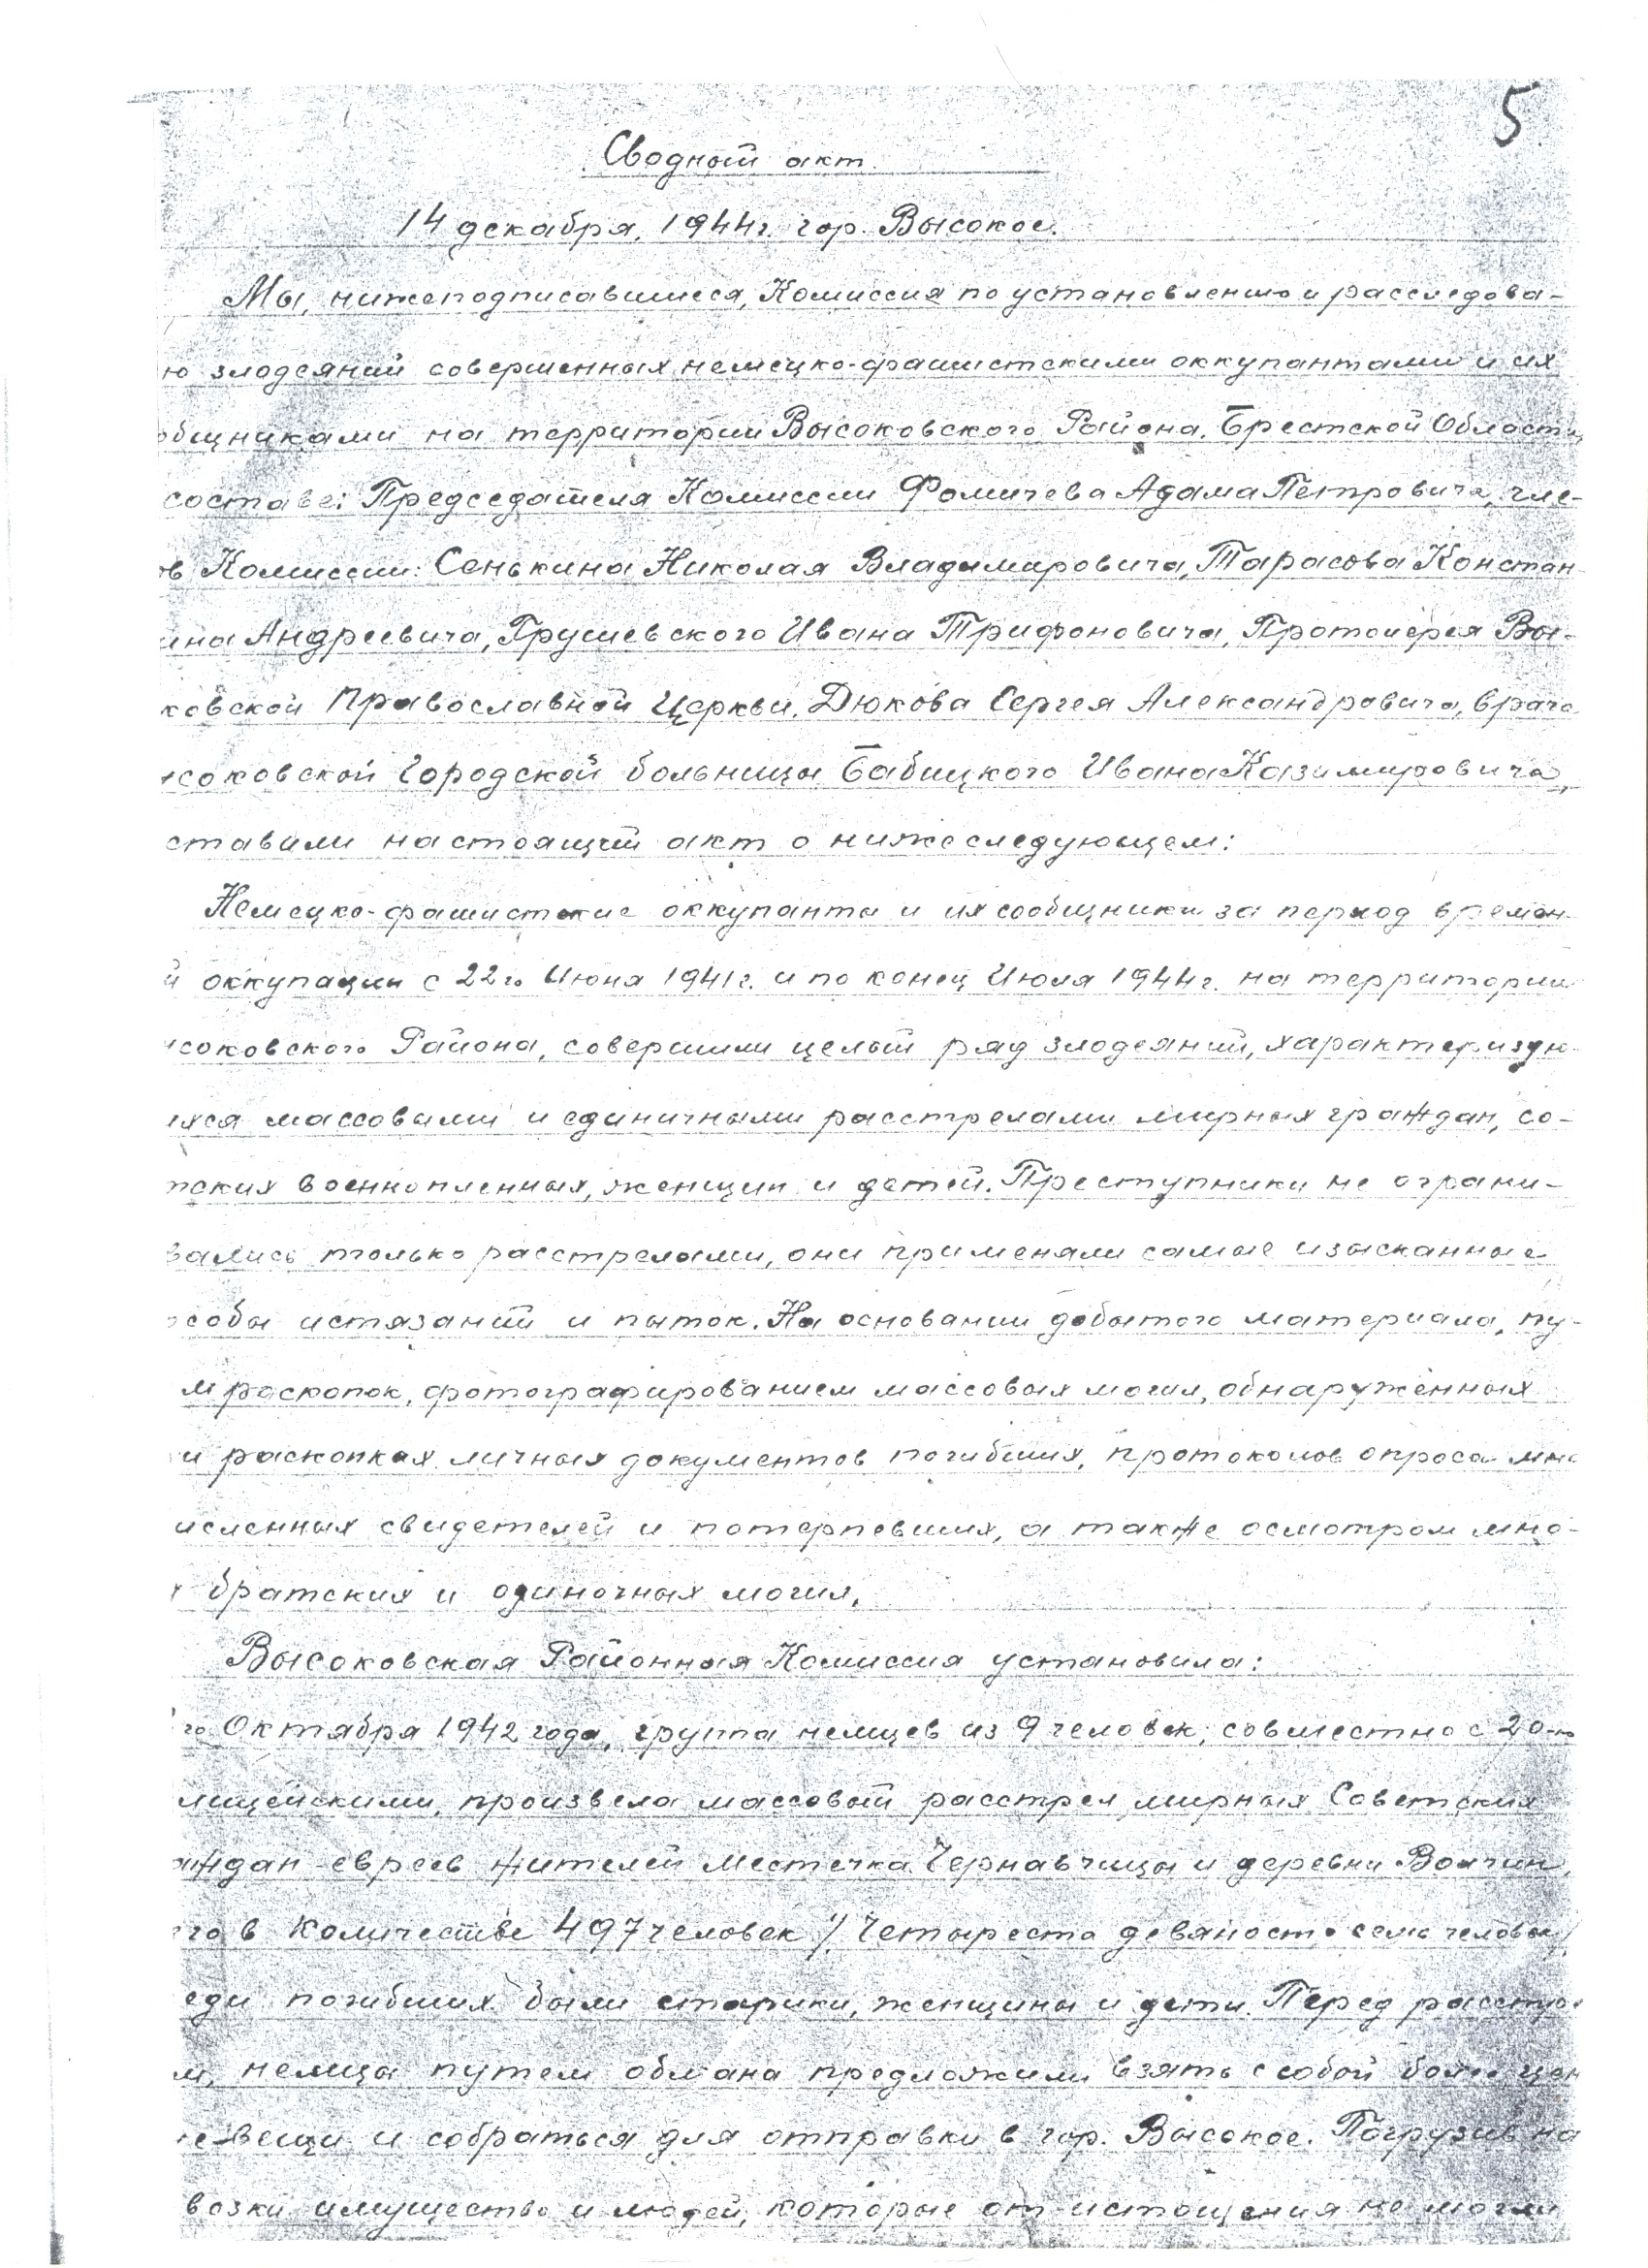 5
Сводный акт.
14 декабря, 1944г. гор. Высокое.
Мы, нижеподписавшиеся, Комиссия по установлению и расследова-
ю злодеяний совершенных немецко-фашистскими оккупантами и их
общниками на территории Высоковского Района, Брестской Области,
составе: Председателя Комиссии Фомичева Адама Петровича, чле-
ов Комиссии: Сенькина Николая Владимировича, Тарасова Констан-
ина Андреевича, Грушевского Ивана Трифоновича, Протоиерея Вы-
ковской Православной Церкви, Дюкова Сергея Александровича, врача
соковской Городской больницы Бабицкого Ивана Казимировича,
ставили настоящий акт о нижеследующем:
Немецко-фашисткие оккупанты и их сообщники за период времен-
й оккупации с 22го Июня 1941г. и по конец Июля 1944г. на территории
соковского Района, совершили целый ряд злодеяний, характеризую-
ихся массовыми и единичными расстрелами мирных граждан, со-
тских военнопленных, женщин и детей. Преступники не ограни-
вались только расстрелами, они применяли самые изысканные
особы истязаний и пыток. На основании добытого материала, пу-
м раскопок, фотографированием массовых могил, обнаруженных
и раскопках личных документов погибших, протоколов опроса мно
исленных свидетелей и потерпевших, а также осмотром мно-
х братских и одиночных могил,
Высоковская Районная Комиссия установила:
го Октября 1942 года, группа немцев из 9 человек, совместно с 20-ю
лицейскими, произвела массовый расстрел мирных Советских
аждан-евреев жителей местечка Чернавчицы и деревни Волчин,
его в количестве 497 человек /Четыреста девяносто семь человек/
еди погибших были старики, женщины и дети. Перед расстре
м, немцы путем обмана предложили взять с собой более цен
е вещи и собраться для отправки в гор. Высокое. Погрузив на
возки имущество и людей, которые от истощения не могли